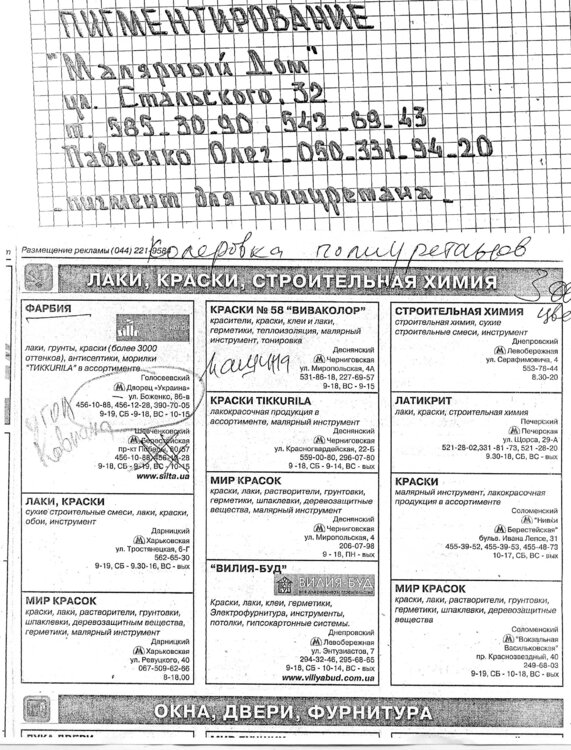 ПИГМЕНТИРОВАНИЕ
"Малярный Дом"
ул. Стальского, 32
т. 585-30-90, 542-69-43
Павленко Олег - 050-331-94-20
- пигмент для полиуретана -
Размещение рекламы (044) 221-958
Колеровка полиуретанов
ЛАКИ, КРАСКИ, СТРОИТЕЛЬНАЯ ХИМИЯ
ФАРБИЯ
лаки, грунты, краски (более 3000
оттенков), антисептики, морилки
"TIKKURILA" в ассортименте
Голосеевский
Дворец «Украина»
ул. Боженко, 86-в
456-10-88, 456-12-28, 390-70-05
9-19, СБ -9-18, ВС - 10-15
угол
Шевченковский
Берестейская
пр-кт Победы,
456-10-88
9-18, СБ - 9-19, ВС - 10-15
www.silta.ua
ЛАКИ, КРАСКИ
сухие строительные смеси, лаки, краски,
обои, инструмент
Дарницкий
Харьковская
ул. Тростянецкая, 6-Г
562-65-30
9-19, СБ - 9.30-16, ВС - вых
МИР КРАСОК
краски, лаки, растворители, грунтовки,
шпаклевки, деревозащитным вещества,
герметики, малярный инструмент
Дарницкий
Харьковская
ул. Ревуцкого, 40
067-509-62-66
8-18.00
КРАСКИ № 58 "ВИВАКОЛОР"
красители, краски, клеи и лаки,
герметики, теплоизоляция, малярный
инструмент, тонировка
Машина
Деснянский
Черниговская
ул. Миропольская, 4А
531-86-18, 227-69-57
9-18, ВС - 9-15
КРАСКИ TIKKURILA
лакокрасочная продукция в
ассортименте, малярный инструмент
Деснянский
Черниговская
ул. Красногвардейская, 22-Б
559-00-80, 296-07-80
9 -18, СБ - 9-14, ВС - вых
МИР КРАСОК
краски, лаки, растворители, грунтовки,
герметики, шпаклевки, деревозащитные
вещества, малярный инструмент
Деснянский
Черниговская
ул. Миропольская, 4
206-07-98
9 - 18, ПН - вых
"ВИЛИЯ-БУД"
ВИЛИЯ-БУД
Краски, лаки, клеи, герметики,
Электрофурнитура, инструменты,
потолки, гипсокартонные системы.
Днепровский
Левобережная
ул. Энтузиастов, 7
294-32-46, 295-68-65
9-18, СБ - 10-14, ВС - вых
www.viliyabud.com.ua
СТРОИТЕЛЬНАЯ ХИМИЯ
строительная химия, сухие
строительные смеси, инструмент
Днепровский
Левобережная
ул. Серафимовича, 4
553-78-44
8.30-20
ЛАТИКРИТ
лаки, краски, строительная химия
Печерский
Печерская
ул. Щорса, 29-А
521-28-02,331 -81 -73, 521 -28-20
9.30-18, СБ, ВС - вых
КРАСКИ
малярный инструмент, лакокрасочная
продукция в ассортименте
Соломенский
"Нивки
Берестейская"
бульв. Ивана Лепсе, 31
455-39-52, 455-39-53, 455-48-73
10-17, СБ, ВС - вых
МИР КРАСОК
краски, лаки, растворители, грунтовки,
герметики, шпаклевки, деревозащитные
вещества
Соломенский
"Вокзальная
Васильковская"
пр. Краснозвездный, 40
249-68-03
9-19, СБ - 10-18, ВС - вых
ОКНА, ДВЕРИ, ФУРНИТУРА